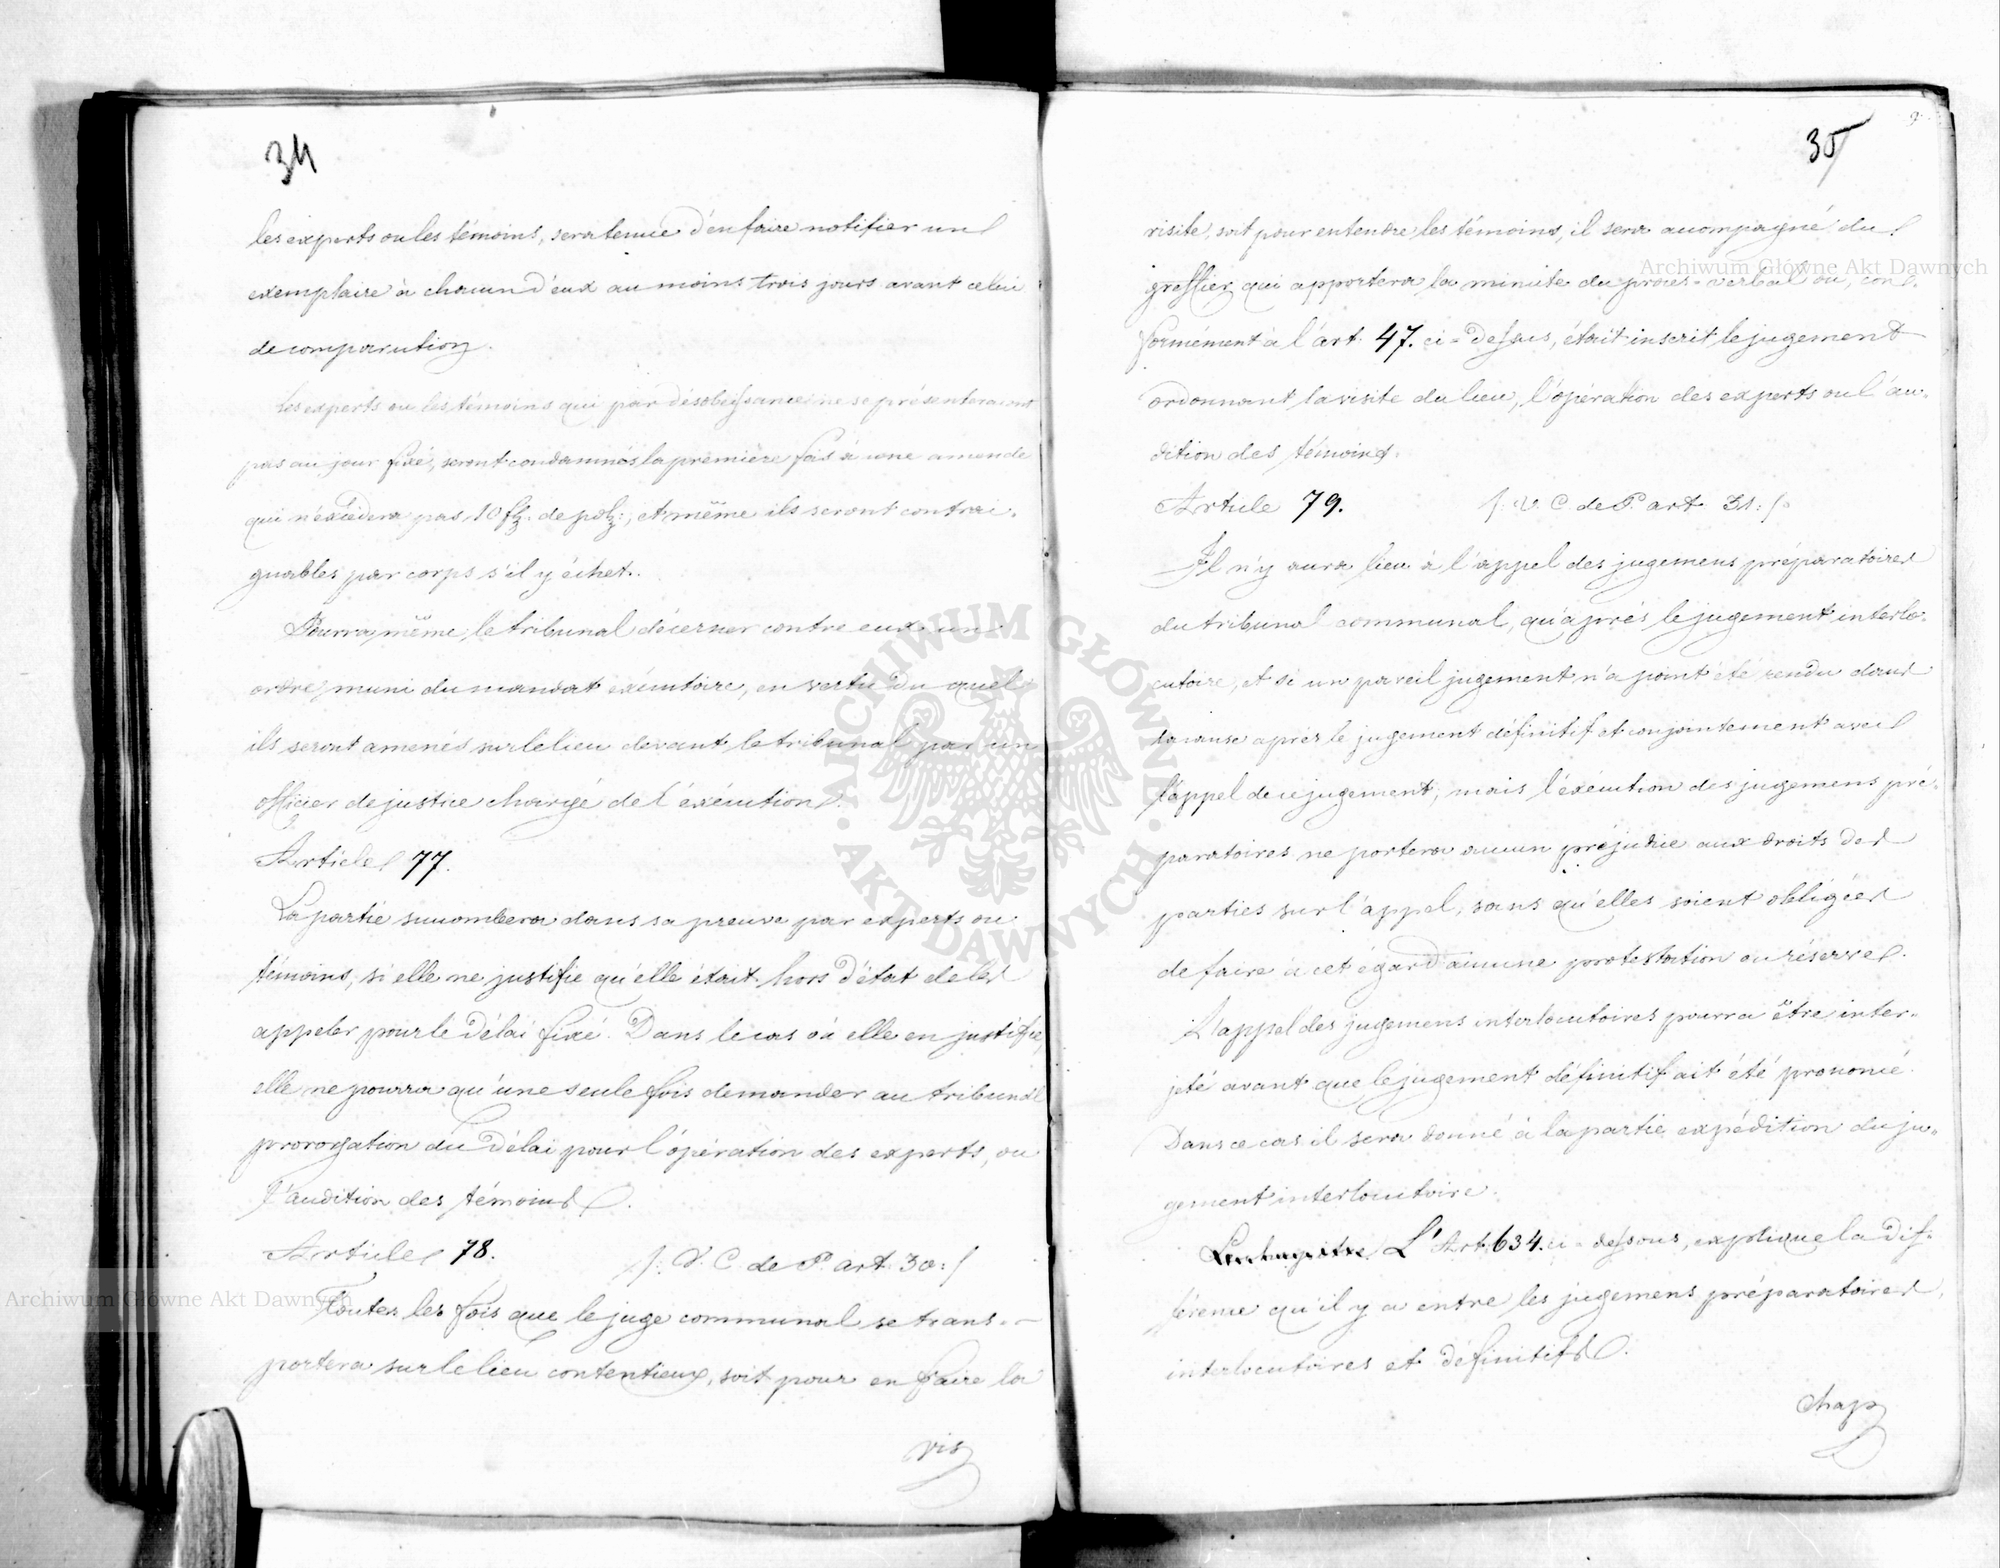 34
les experts ou les témoins, sera tenue d'en faire notifier un
exemplaire à chacun d'eux au moins trois jours avant celui
de comparution.
Les experts ou les témoins qui par désobéissance ne se présenteraient
pas au jour fixé, seront condamnés la première fois à une amende
qui n'excédera pas 10 flz. de polz:, et même ils seront contrai-
gnables par corps s'il y échet.
Pourra même le tribunal décerner contre eux un
ordre, muni du mandat exécutoire, en vertu du quel
ils seront amenés sur le lieu devant le tribunal par un
officier de justice chargé de l'exécution.
Article 77.
La partie succombera dans sa preuve par experts ou
témoins, si elle ne justifie qu'elle était hors d'état de les
appeler pour le délai fixé. Dans le cas où elle en justifie,
elle ne pourra qu'une seule fois demander au tribunal
prorogation du délai pour l'opération des experts, ou
l'audition des témoins.
Article 78. /: V. C. de P. art. 30 :/
Toutes les fois que le juge communal se trans-
portera sur le lieu contentieux, soit pour en faire la
vis
35
visite, soit pour entendre les témoins, il sera accompagné du
greffier qui apportera la minute du procès-verbal où, con-
formément à l'art. 47. ci-dessus, était inscrit le jugement
ordonnant la visite du lieu, l'opération des experts ou l'au-
dition des témoins.
Article 79. /: V. C. de P. art. 31 :/
Il n'y aura lieu à l'appel des jugemens préparatoires
du tribunal communal, qu'après le jugement interlo-
cutoire, et si un pareil jugement n'a point été rendu dans
la cause après le jugement définitif et conjointement avec
l'appel de ce jugement; mais l'exécution des jugemens pré-
paratoires ne portera aucun préjudice aux droits des
parties sur l'appel, sans qu'elles soient obligées
de faire à cet égard aucune protestation ou réserve.
L'appel des jugemens interlocutoires pourra être inter-
jeté avant que le jugement définitif ait été prononcé.
Dans ce cas il sera donné à la partie expédition du ju-
gement interlocutoire.
L'Art. 634. ci-dessous, explique la dif-
férence qu'il y a entre les jugemens préparatoires,
interlocutoires et définitifs.
chap
Archiwum Główne Akt Dawnych
Archiwum Główne Akt Dawnych
ARCHIWUM GŁÓWNE AKT DAWNYCH